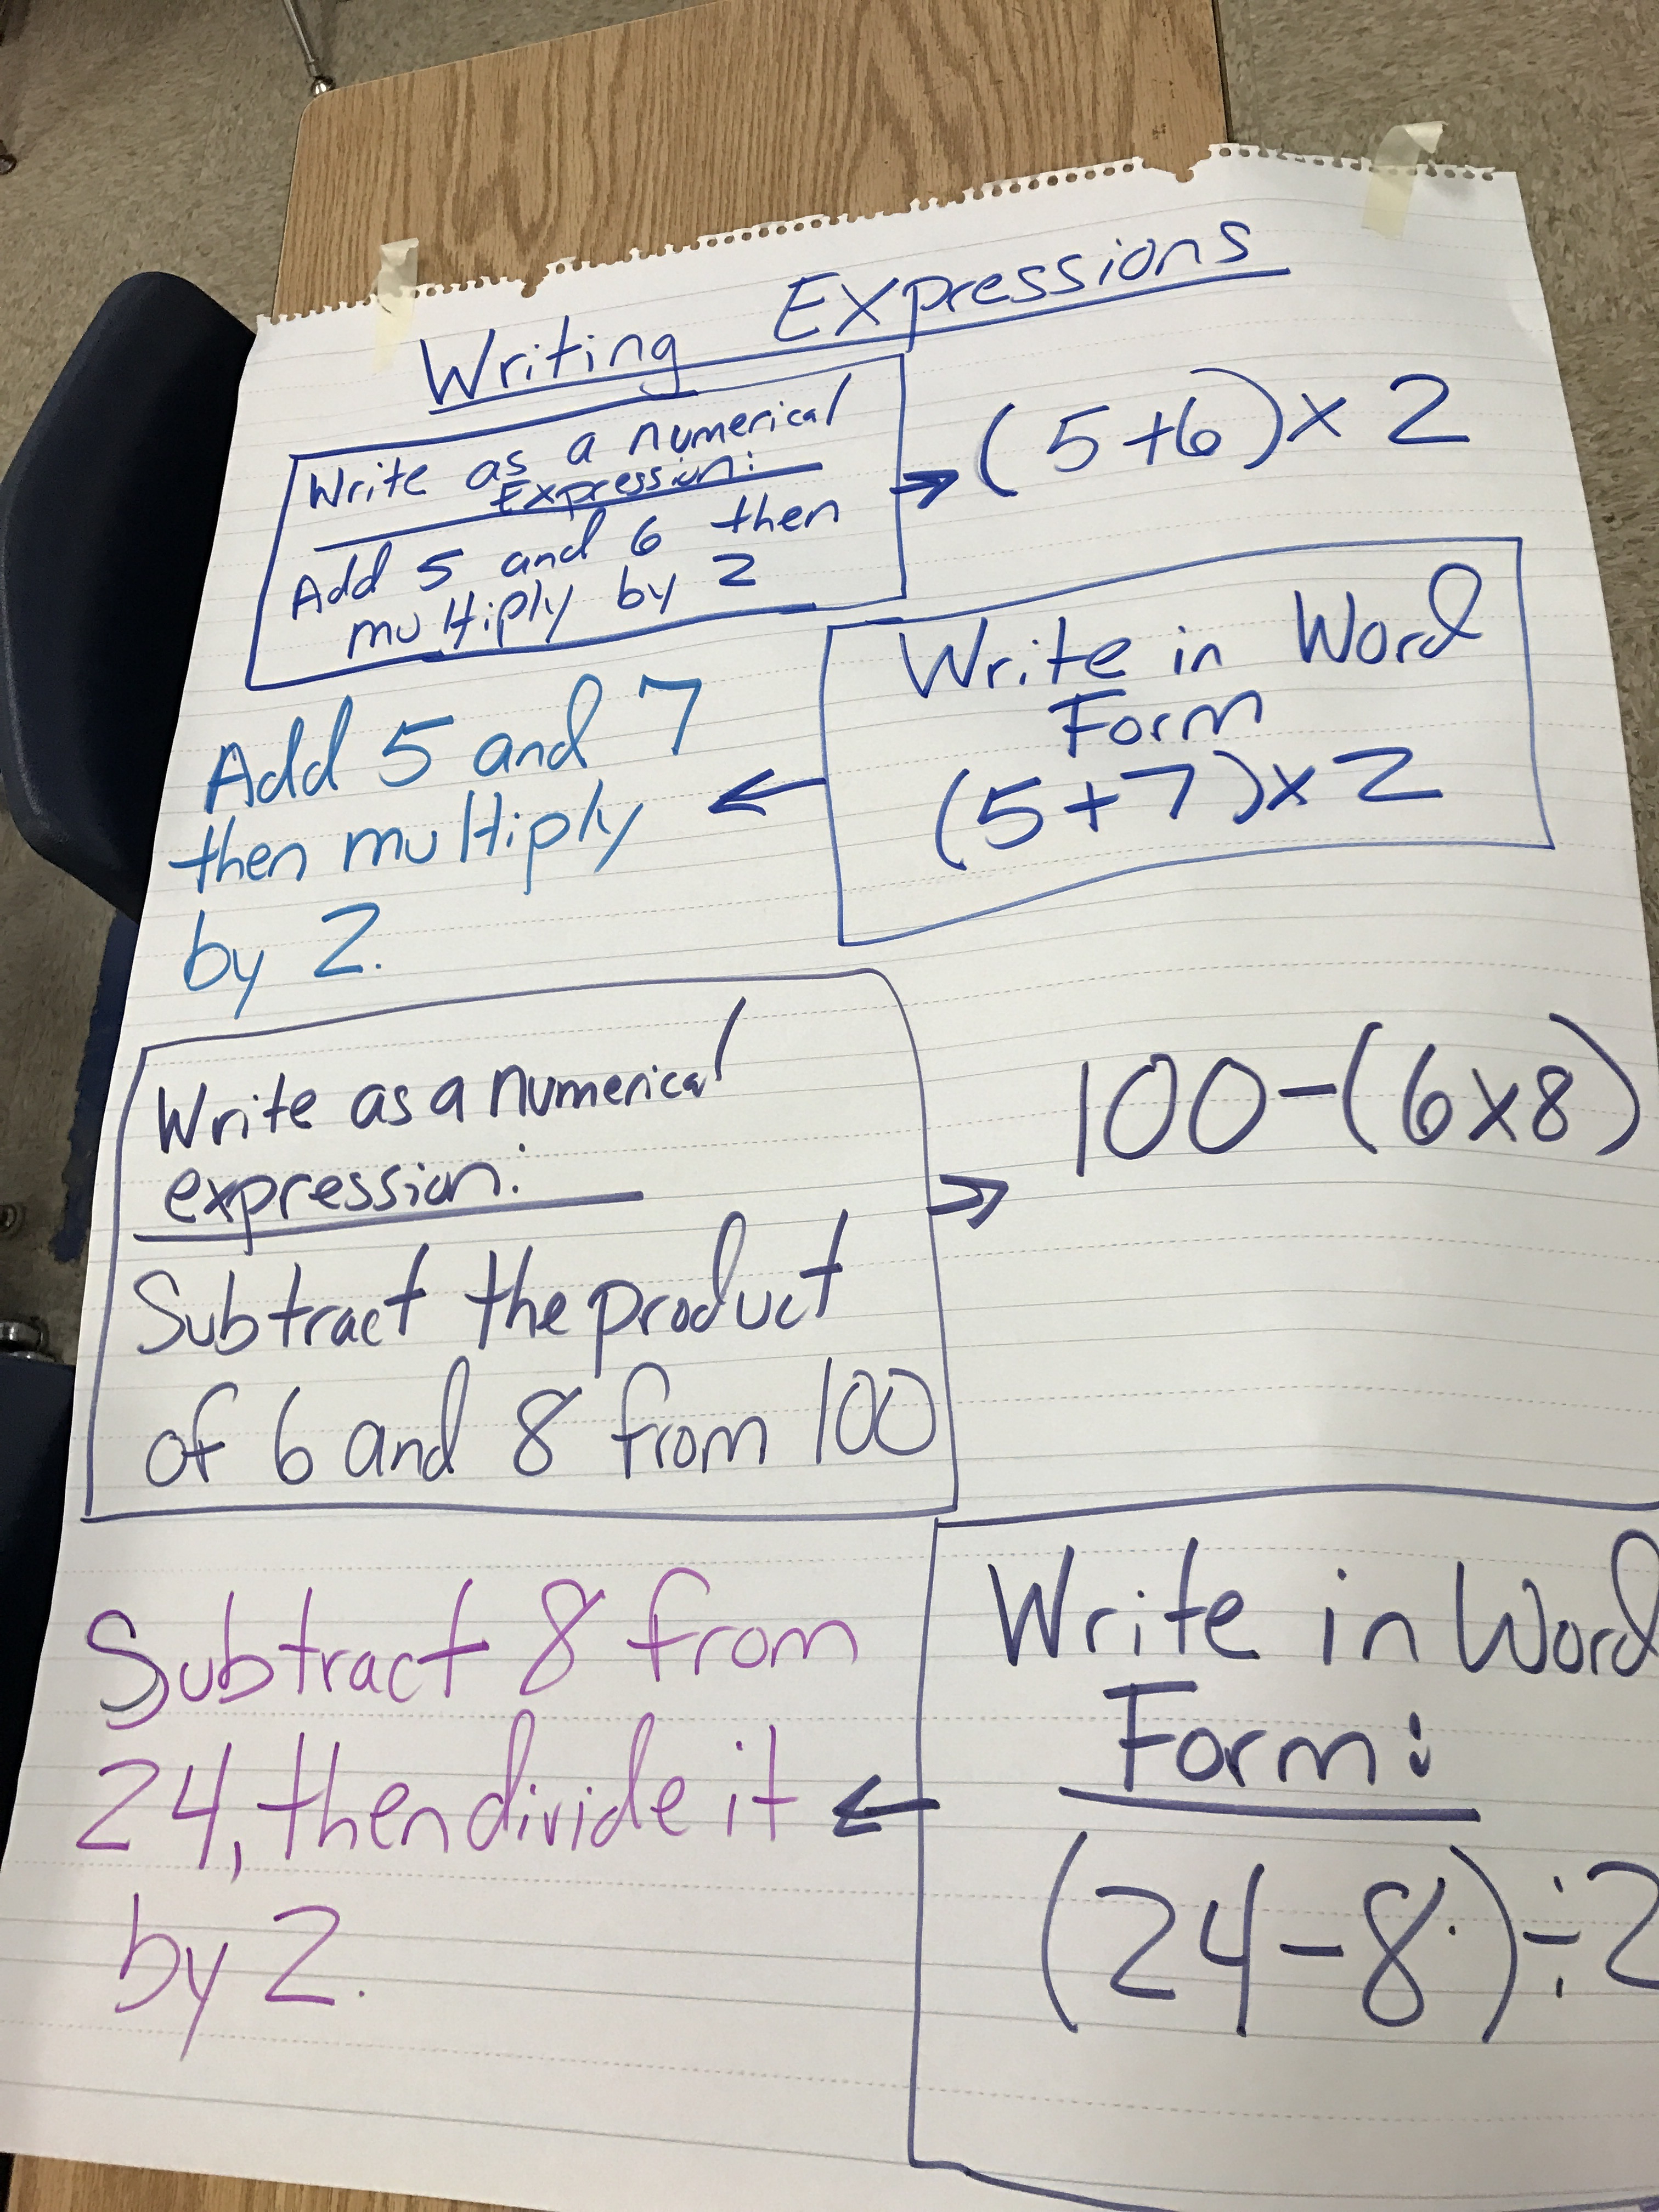 Writing Expressions
Write as a numerical
Expression:
Add 5 and 6 then
multiply by 2
(5+6)x 2
Write in Word
Form
(5+7)x 2
Add 5 and 7
then multiply
by 2.
Write as a numerical
expression:
Subtract the product
of 6 and 8 from 100
100-(6x8)
Write in Word
Form:
(24-8)÷2
Subtract 8 from
24, then divide it
by 2.